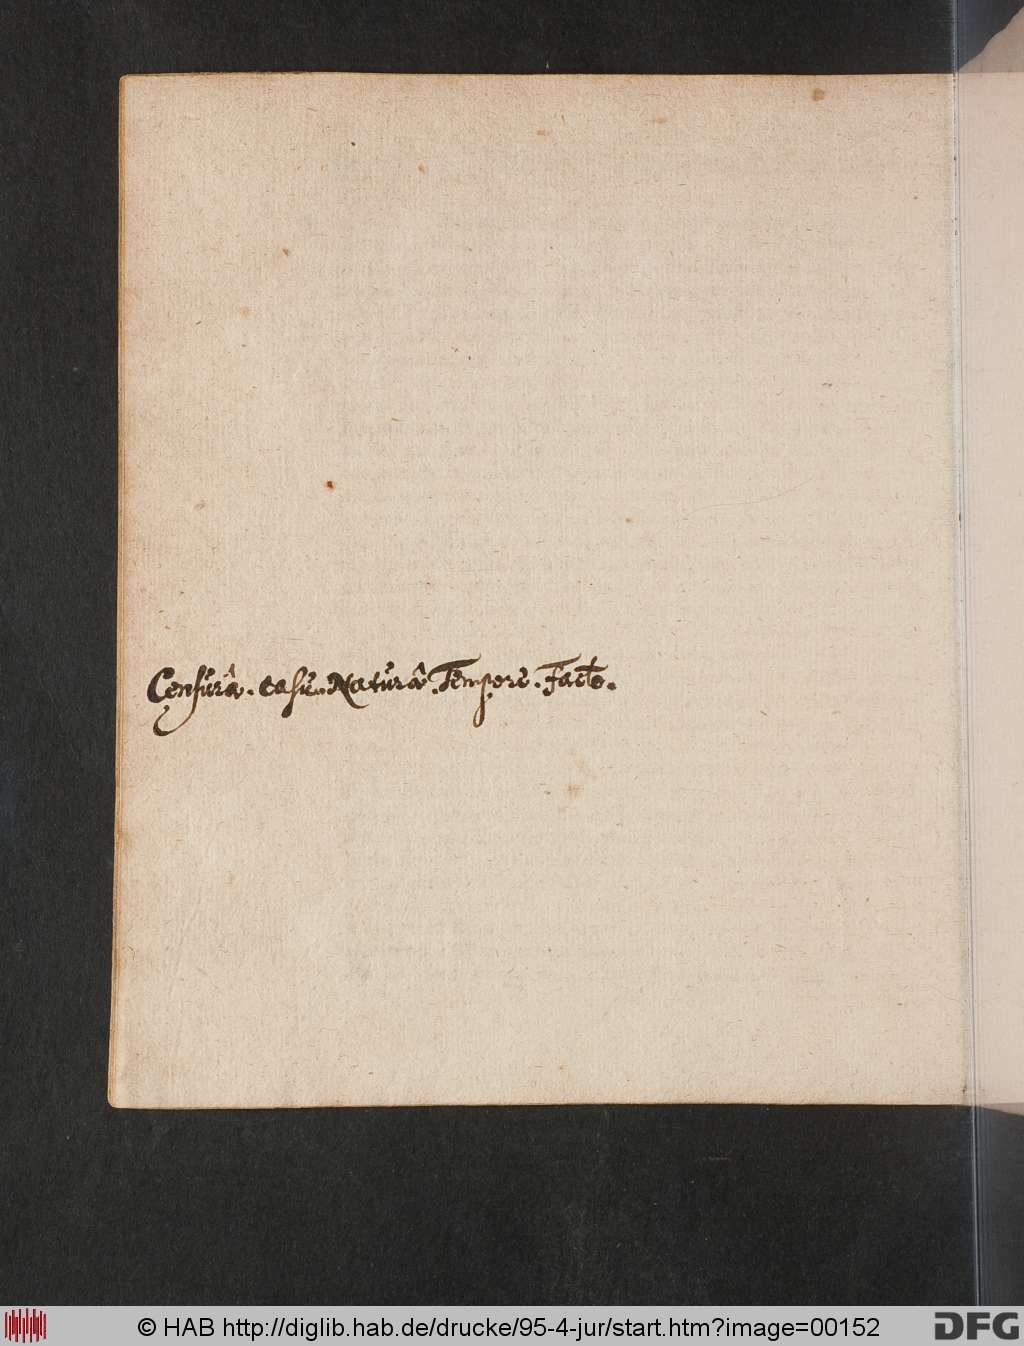 Censurâ. casu. Naturâ. Tempore. Facto.
© HAB http://diglib.hab.de/drucke/95-4-jur/start.htm?image=00152
DFG